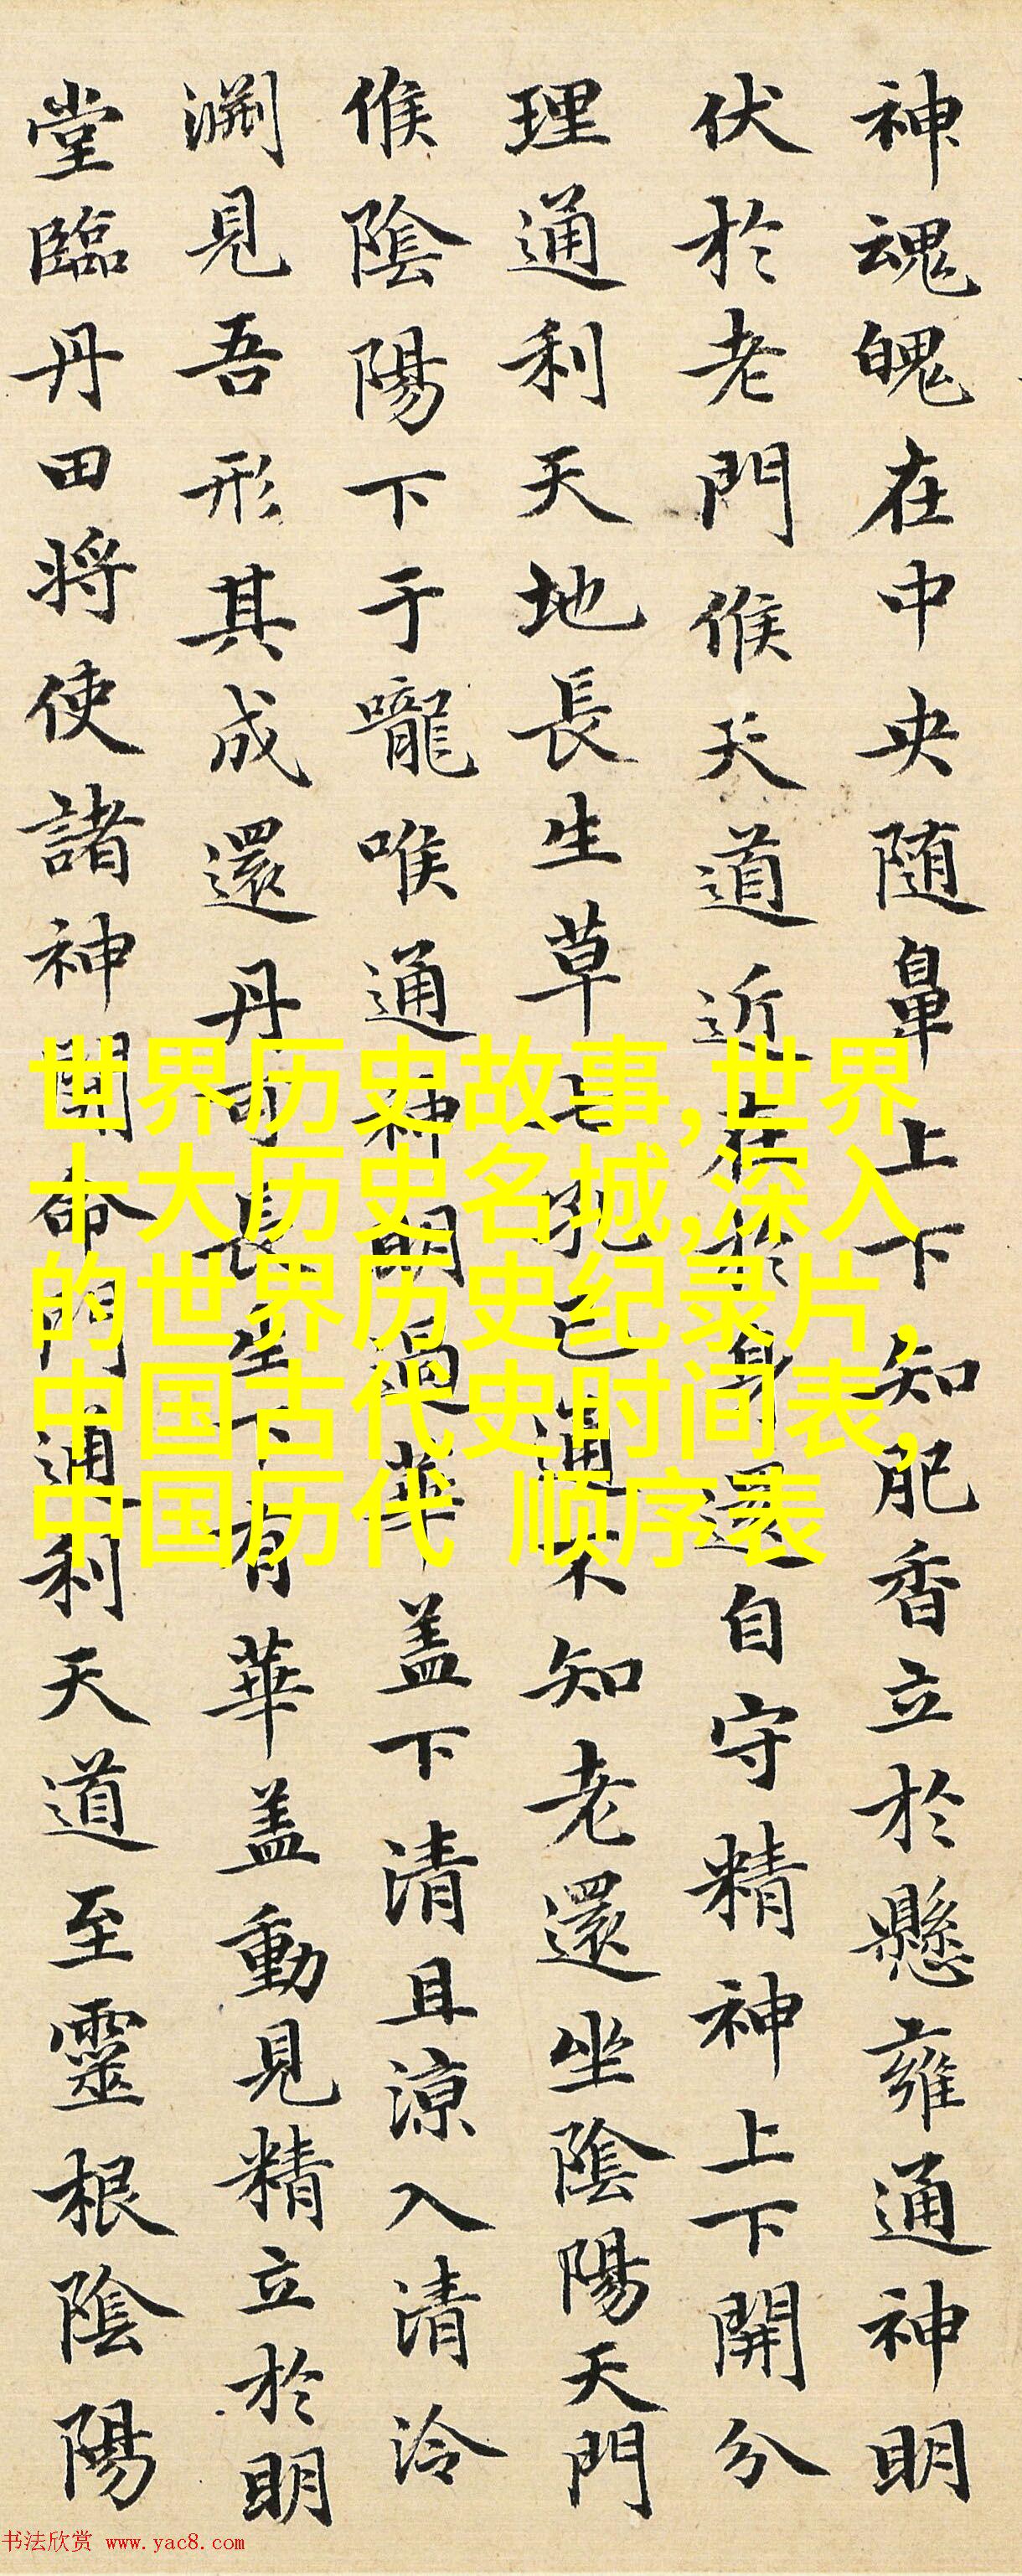 神魂魄在中央随鼻上下知肥香立於懸雍通神明
伏於老門候天道近在於身還自守精神上下開分
理通利天地長生草七孔已通不知老還坐陰陽天門
候陰陽下于嚨喉通神明過華盖下清且涼入清泠
淵見吾形其成還丹可長生下有華盖動見精立於明
堂臨丹田將使諸神開命門通利天道至靈根陰陽
世界历史故事,世界
十大历史名城,深入
的世界历史纪录片,
中国古代史时间表,
中国历代 顺序表
书法欣赏 www.yac8.com